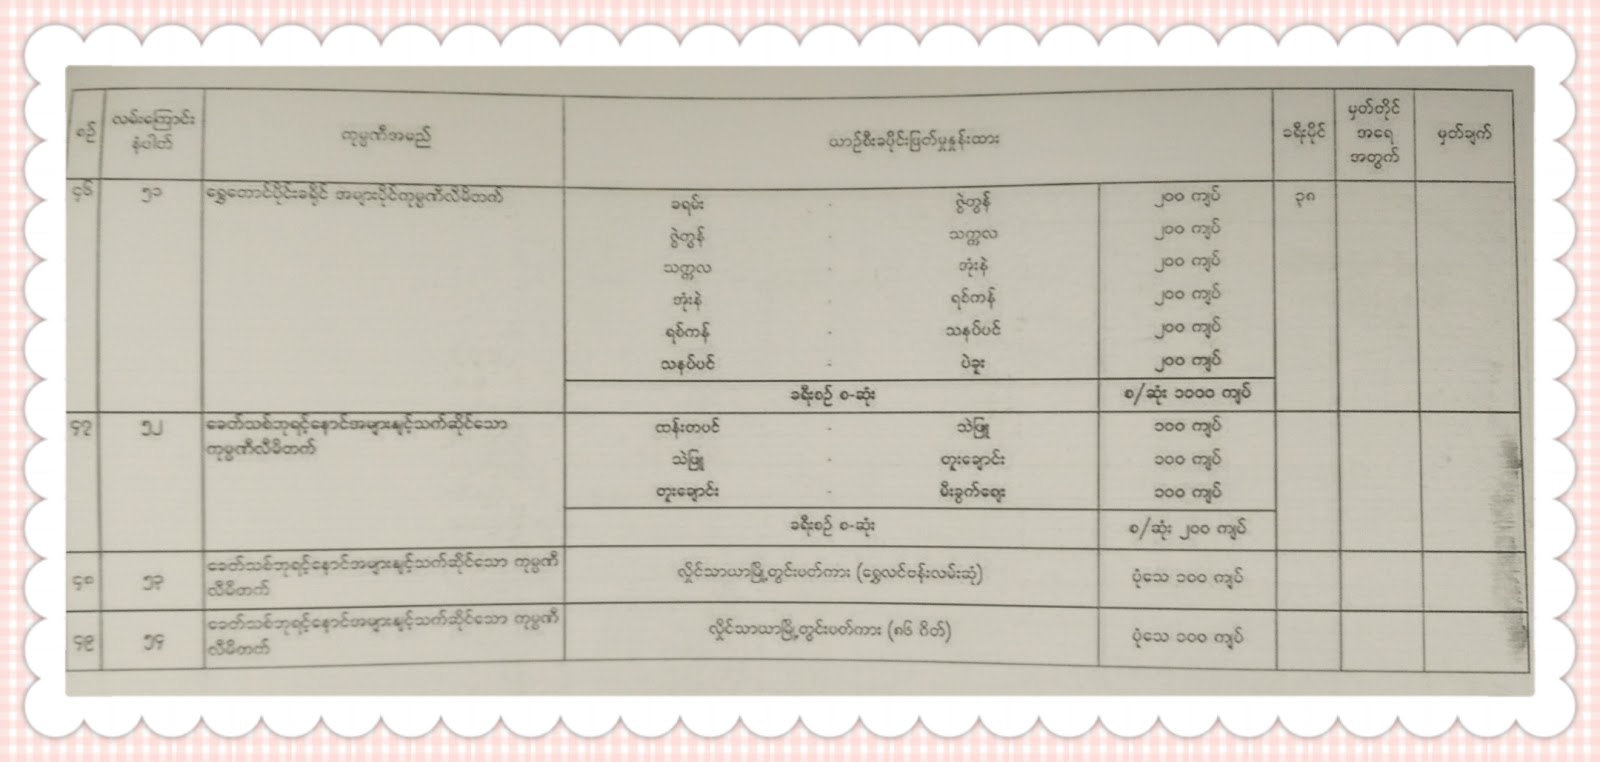 စဉ် လမ်းကြောင်း နံပါတ် ကုမ္ပဏီအမည် ယာဉ်စီးခပိုင်းဖြတ်မှုနှုန်းထား ခရီးမိုင် မှတ်တိုင် အရေ အတွက် မှတ်ချက်
၄၆ ၅၁ ရွှေတောင်ပိုင်းခရိုင် အများပိုင်ကုမ္ပဏီလီမိတက် ခရမ်း - ဇွဲတွန် ၂၀၀ ကျပ် ၃၈
ဇွဲတွန် - သက္ကလ ၂၀၀ ကျပ်
သက္ကလ - ဘုံးနဲ ၂၀၀ ကျပ်
ဘုံးနဲ - ရစ်ကန် ၂၀၀ ကျပ်
ရစ်ကန် - သနပ်ပင် ၂၀၀ ကျပ်
သနပ်ပင် - ပဲခူး ၂၀၀ ကျပ်
ခရီးစဉ် စ-ဆုံး စ/ဆုံး ၁၀၀၀ ကျပ်
၄၇ ၅၂ ခေတ်သစ်ဘုရင့်နောင်အများနှင့်သက်ဆိုင်သော ထန်းတပင် - သဲဖြူ ၁၀၀ ကျပ်
ကုမ္ပဏီလီမိတက် သဲဖြူ - တူးချောင်း ၁၀၀ ကျပ်
တူးချောင်း - မီးခွက်ဈေး ၁၀၀ ကျပ်
ခရီးစဉ် စ-ဆုံး စ/ဆုံး ၂၀၀ ကျပ်
၄၈ ၅၃ ခေတ်သစ်ဘုရင့်နောင်အများနှင့်သက်ဆိုင်သော ကုမ္ပဏီ လှိုင်သာယာမြို့တွင်းပတ်ကား (ရွှေလင်ဗန်းလမ်းဆုံ) ပုံသေ ၁၀၀ ကျပ်
လီမိတက်
၄၉ ၅၄ ခေတ်သစ်ဘုရင့်နောင်အများနှင့်သက်ဆိုင်သော ကုမ္ပဏီ လှိုင်သာယာမြို့တွင်းပတ်ကား (၈၆ ဂိတ်) ပုံသေ ၁၀၀ ကျပ်
လီမိတက်